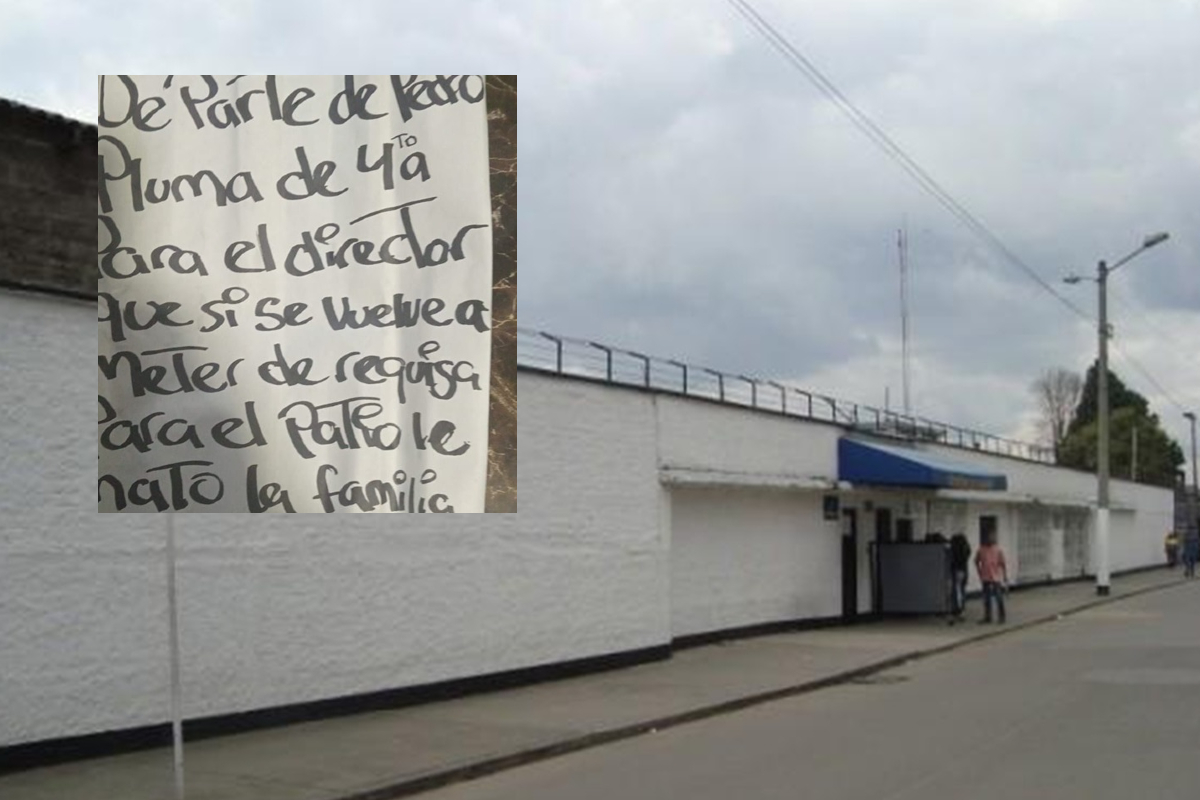 De Parte de Pedro
Pluma de 4ta
Para el director
que si se vuelve a
meter de requisa
Para el patio le
mato la familia